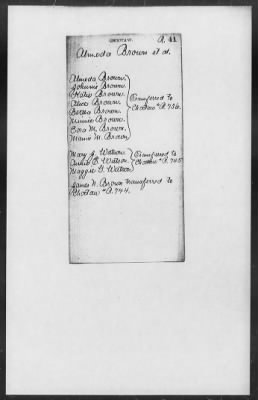 CHOCTAW. R. 41
Almeda Brown et al.
Almeda Brown
Johnnie Brown
Brown
Alice Brown
Bertha Brown
Minnie Brown
Cora M. Brown
Mamie M. Brown
Transferred to
Choctaw #R. 736.
Mary J. Watson
Annie E. Watson
Maggie D. Watson
Transferred to
Choctaw #R. 745
James N. Brown transferred to
Choctaw #R. 744.